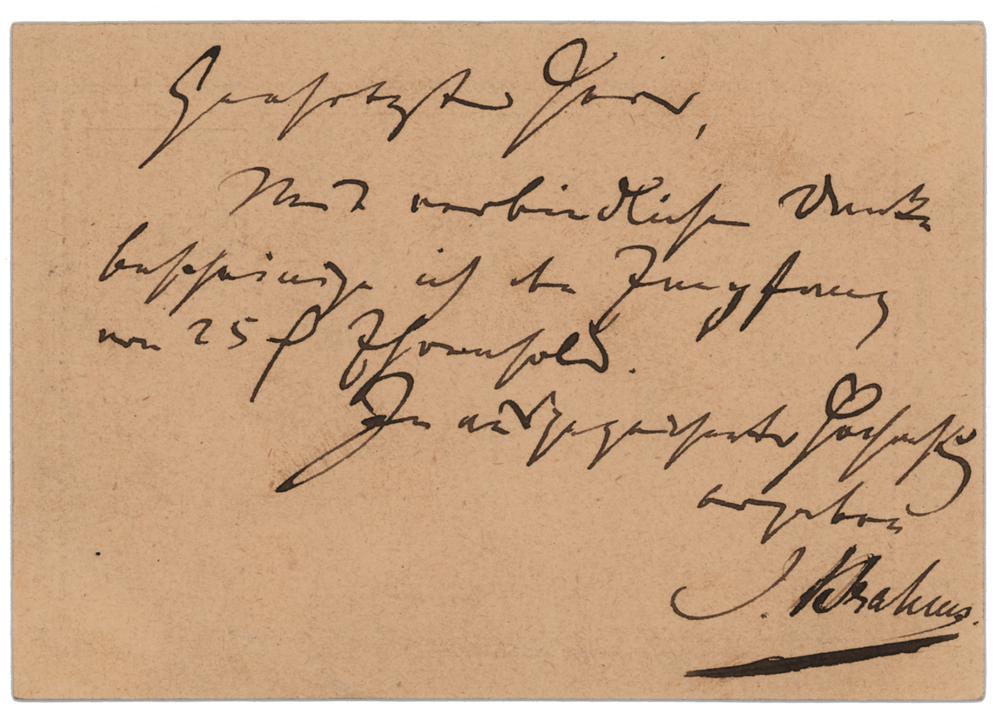 Geehrtester Herr,
Mit verbindlichem Danke
bescheinige ich den Empfang
von 25 f
In ausgezeichneter Hochachtg
ergeben
J. Brahms.